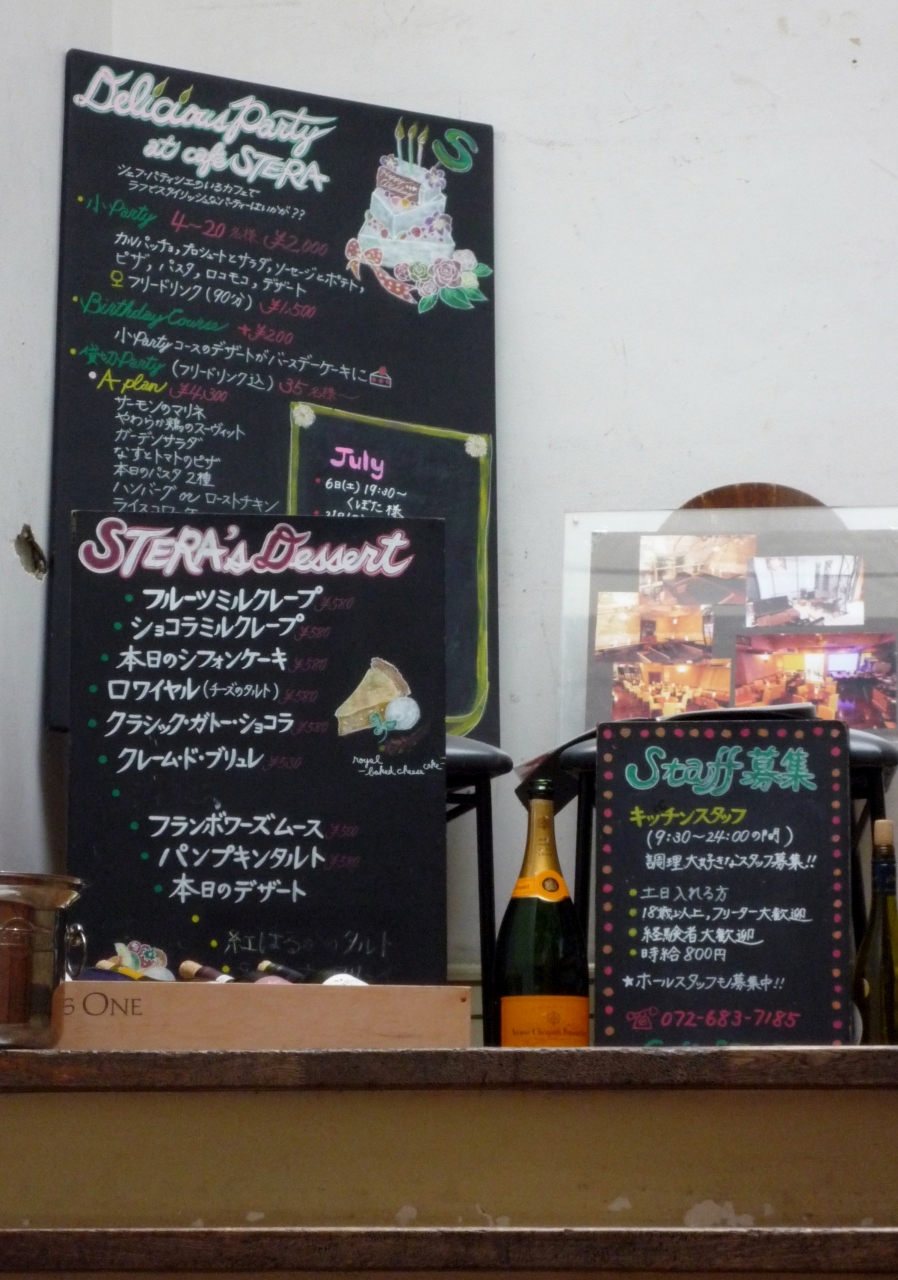 Delicious Party
at cafe STERA
シェフ・パティシエのいるカフェで
ラフでスタイリッシュなパーティーはいかが??
S
小Party 4〜20名様 ¥2,000
カルパッチョ, プロシュートとサラダ, ソーセージとポテト,
ピザ, パスタ, ロコモコ, デザート
フリードリンク(90分) ¥1,500
Birthday Course +¥200
小Partyコースのデザートがバースデーケーキに
貸切Party (フリードリンク込) 35名様〜
A plan ¥4,300
サーモンのマリネ
やわらか鶏のスーヴィット
ガーデンサラダ
なすとトマトのピザ
本日のパスタ2種
ハンバーグ or ローストチキン
July
6日(土) 19:30〜
くぼた様
STERA's Dessert
フルーツミルクレープ ¥580
ショコラミルクレープ ¥580
本日のシフォンケーキ ¥580
ロワイヤル(チーズのタルト) ¥580
クラシック・ガトー・ショコラ ¥580
クレーム・ド・ブリュレ ¥530
royal
-baked cheese cake-
フランボワーズムース ¥500
パンプキンタルト ¥580
本日のデザート
タルト
ONE
Staff募集
キッチンスタッフ
(9:30〜24:00の間)
調理大好きなスタッフ募集!!
土日入れる方
18歳以上, フリーター大歓迎
経験者大歓迎
時給800円
★ホールスタッフも募集中!!
☎072-683-7185